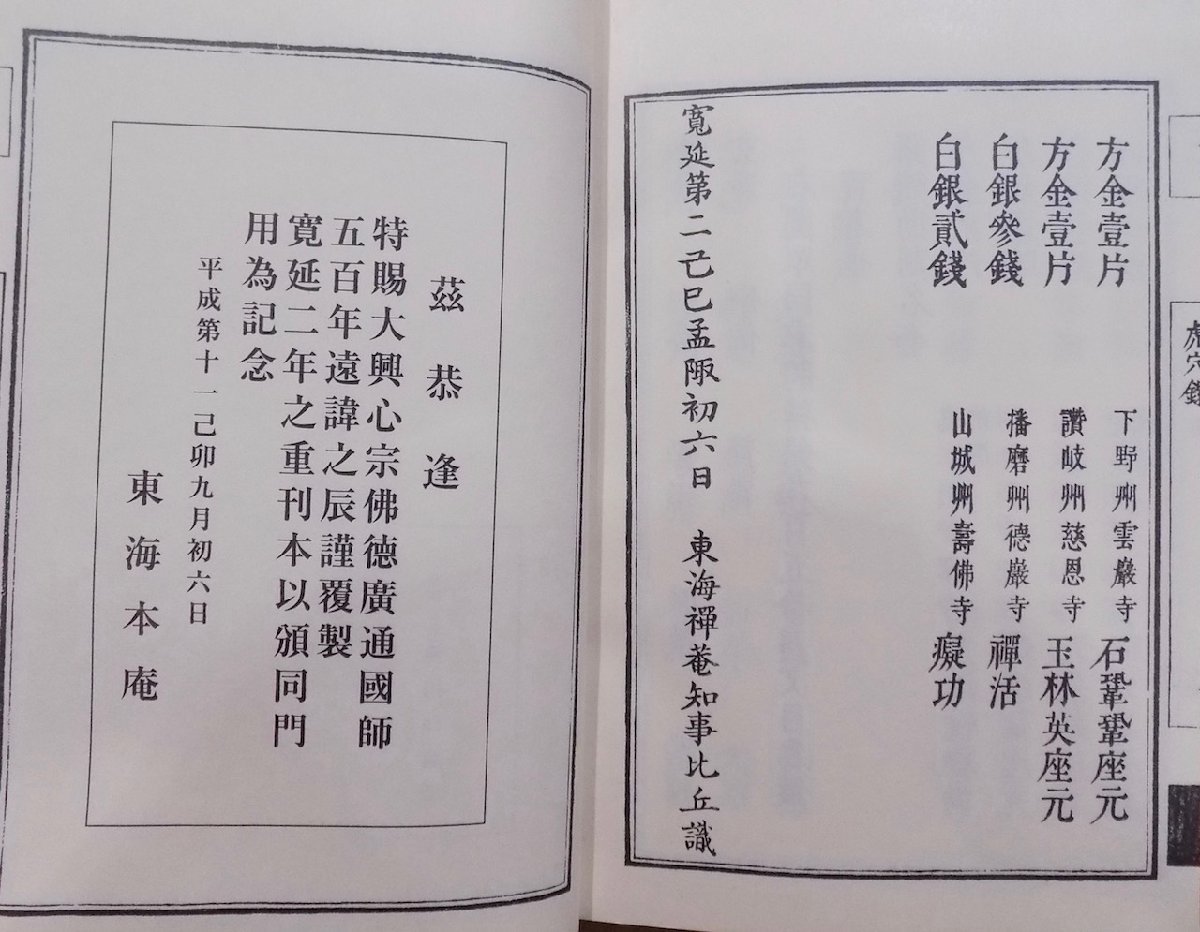 虎穴録
方金壹片　下野州雲巖寺石鞏鞏座元
方金壹片　讚岐州慈恩寺玉林英座元
白銀參錢　播磨州德巖寺禪活
白銀貳錢　山城州壽佛寺癡功
寬延第二己巳孟陬初六日　東海禪菴知事比丘識
茲恭逢
特賜大興心宗佛德廣通國師
五百年遠諱之辰謹覆製
寬延二年之重刊本以頒同門
用為記念
平成第十一己卯九月初六日
東海本庵